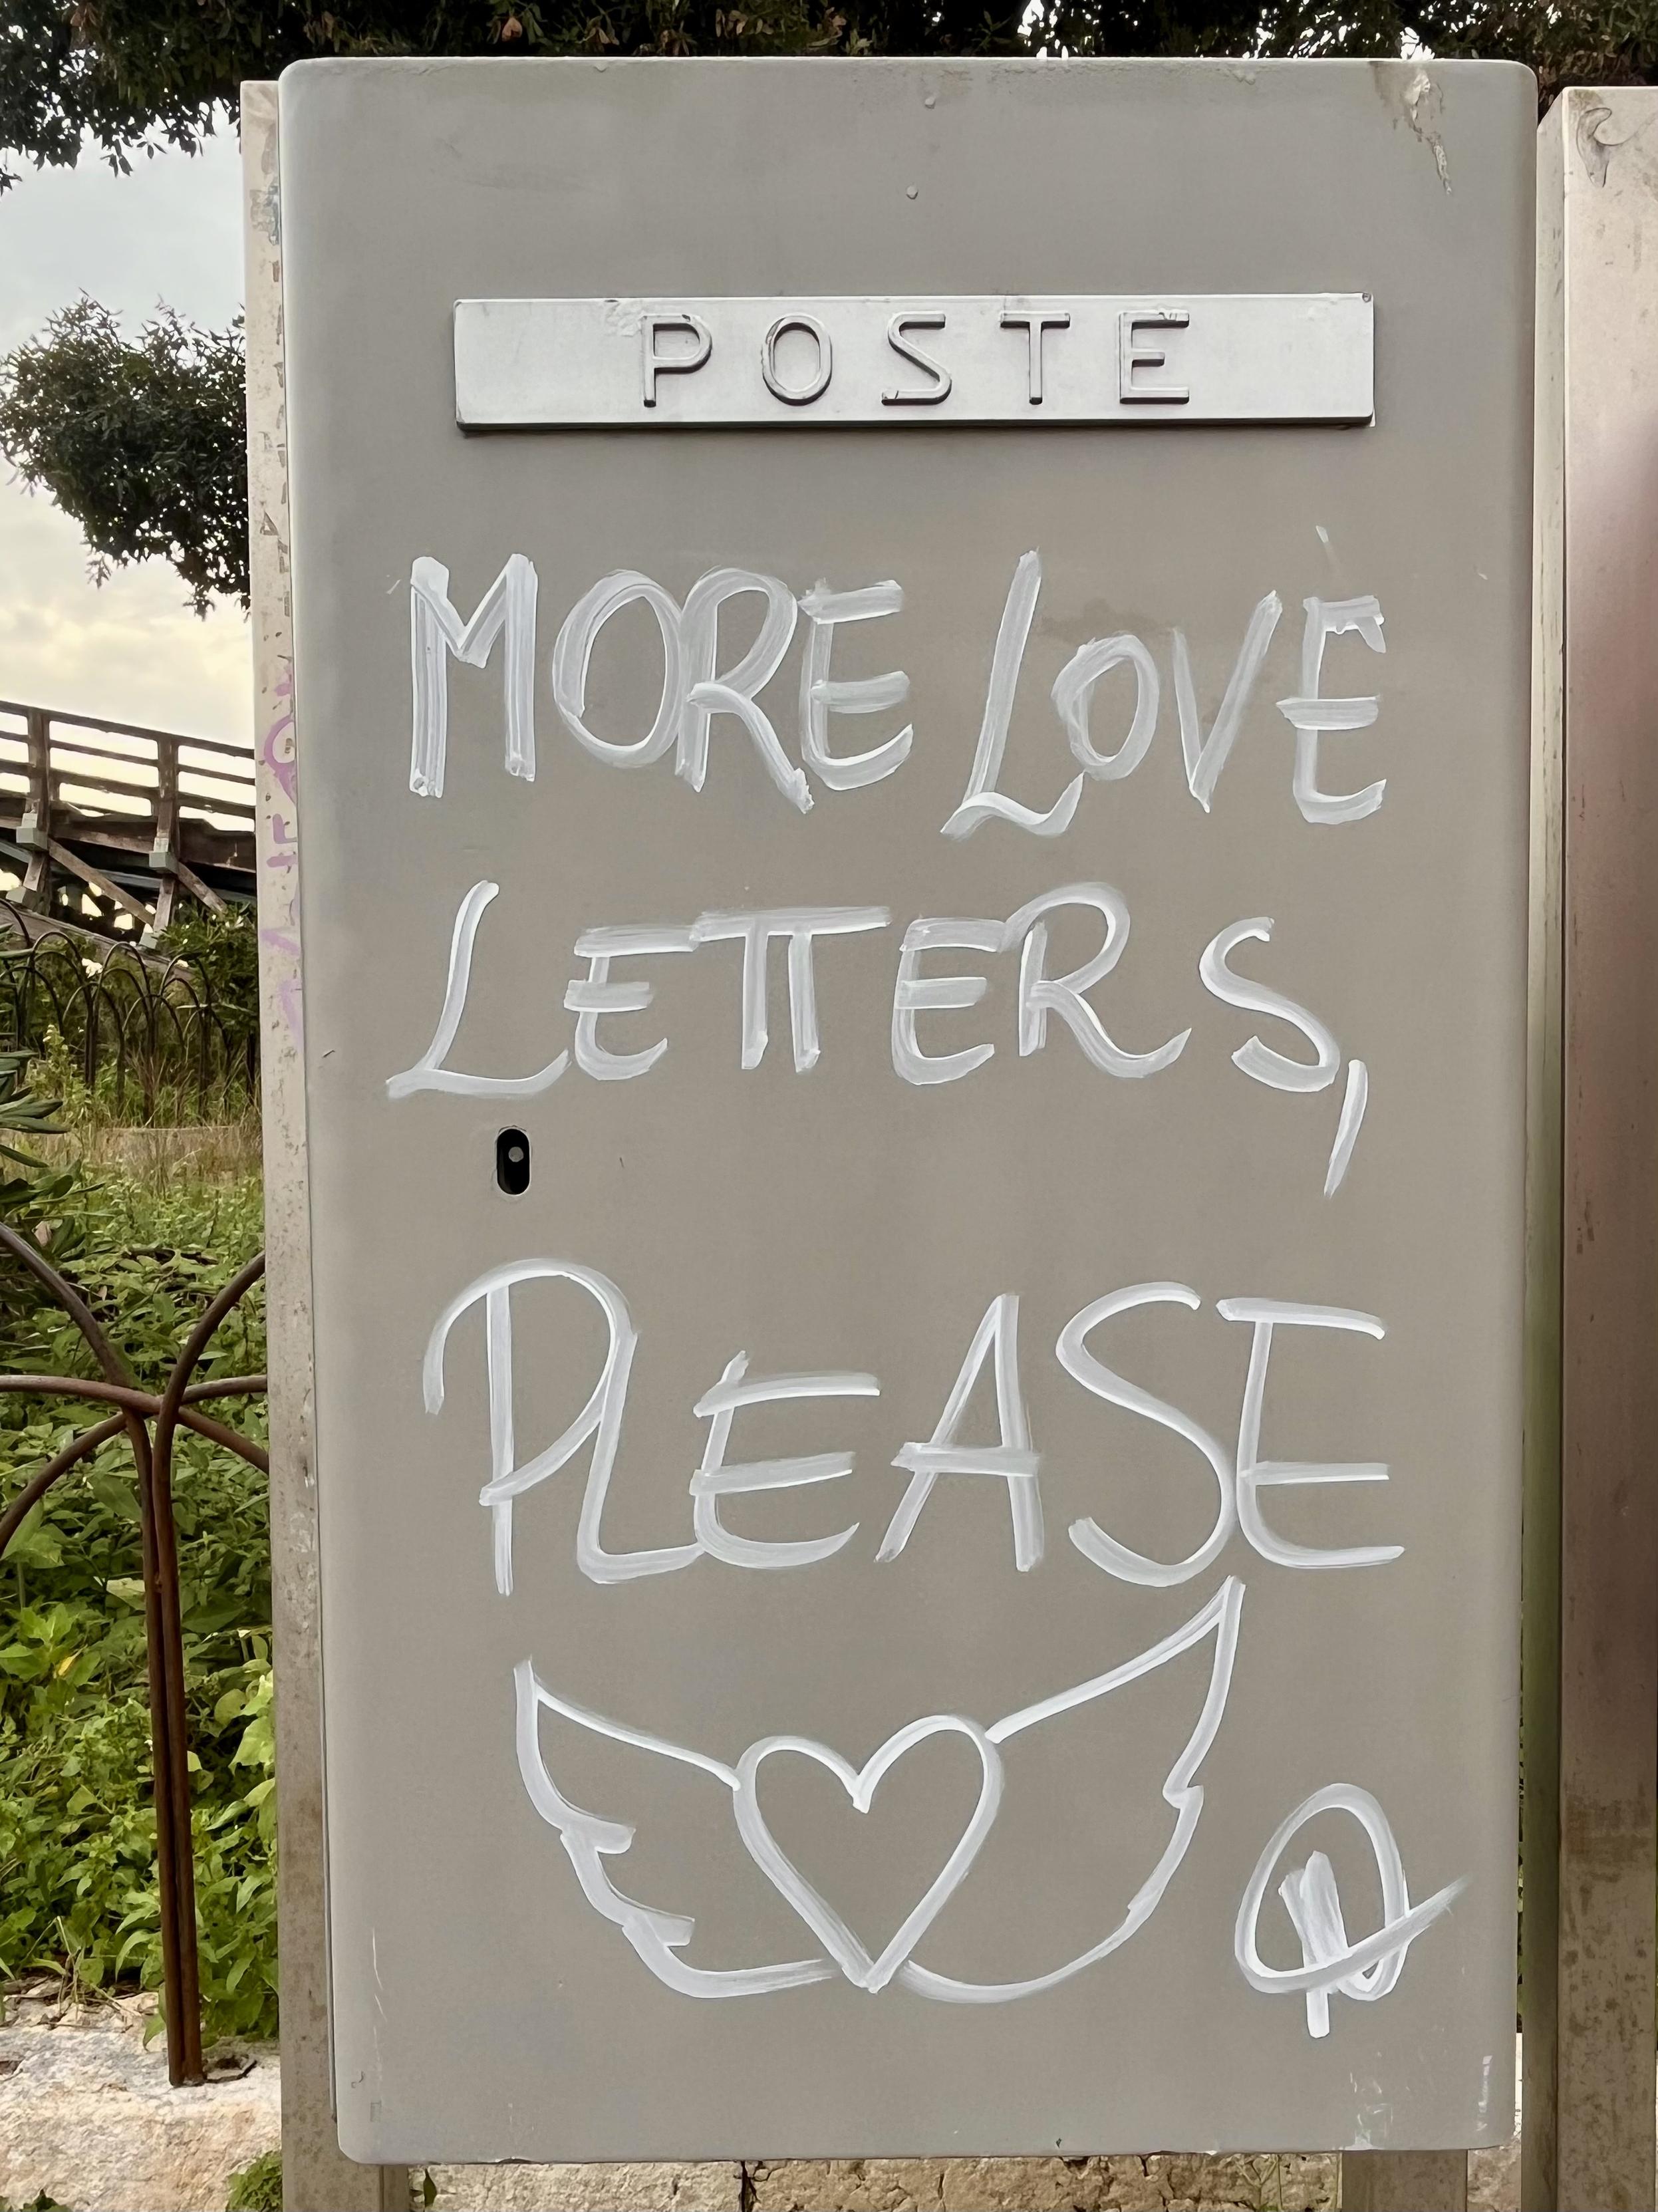 POSTE
MORE LOVE
LETTERS,
PLEASE